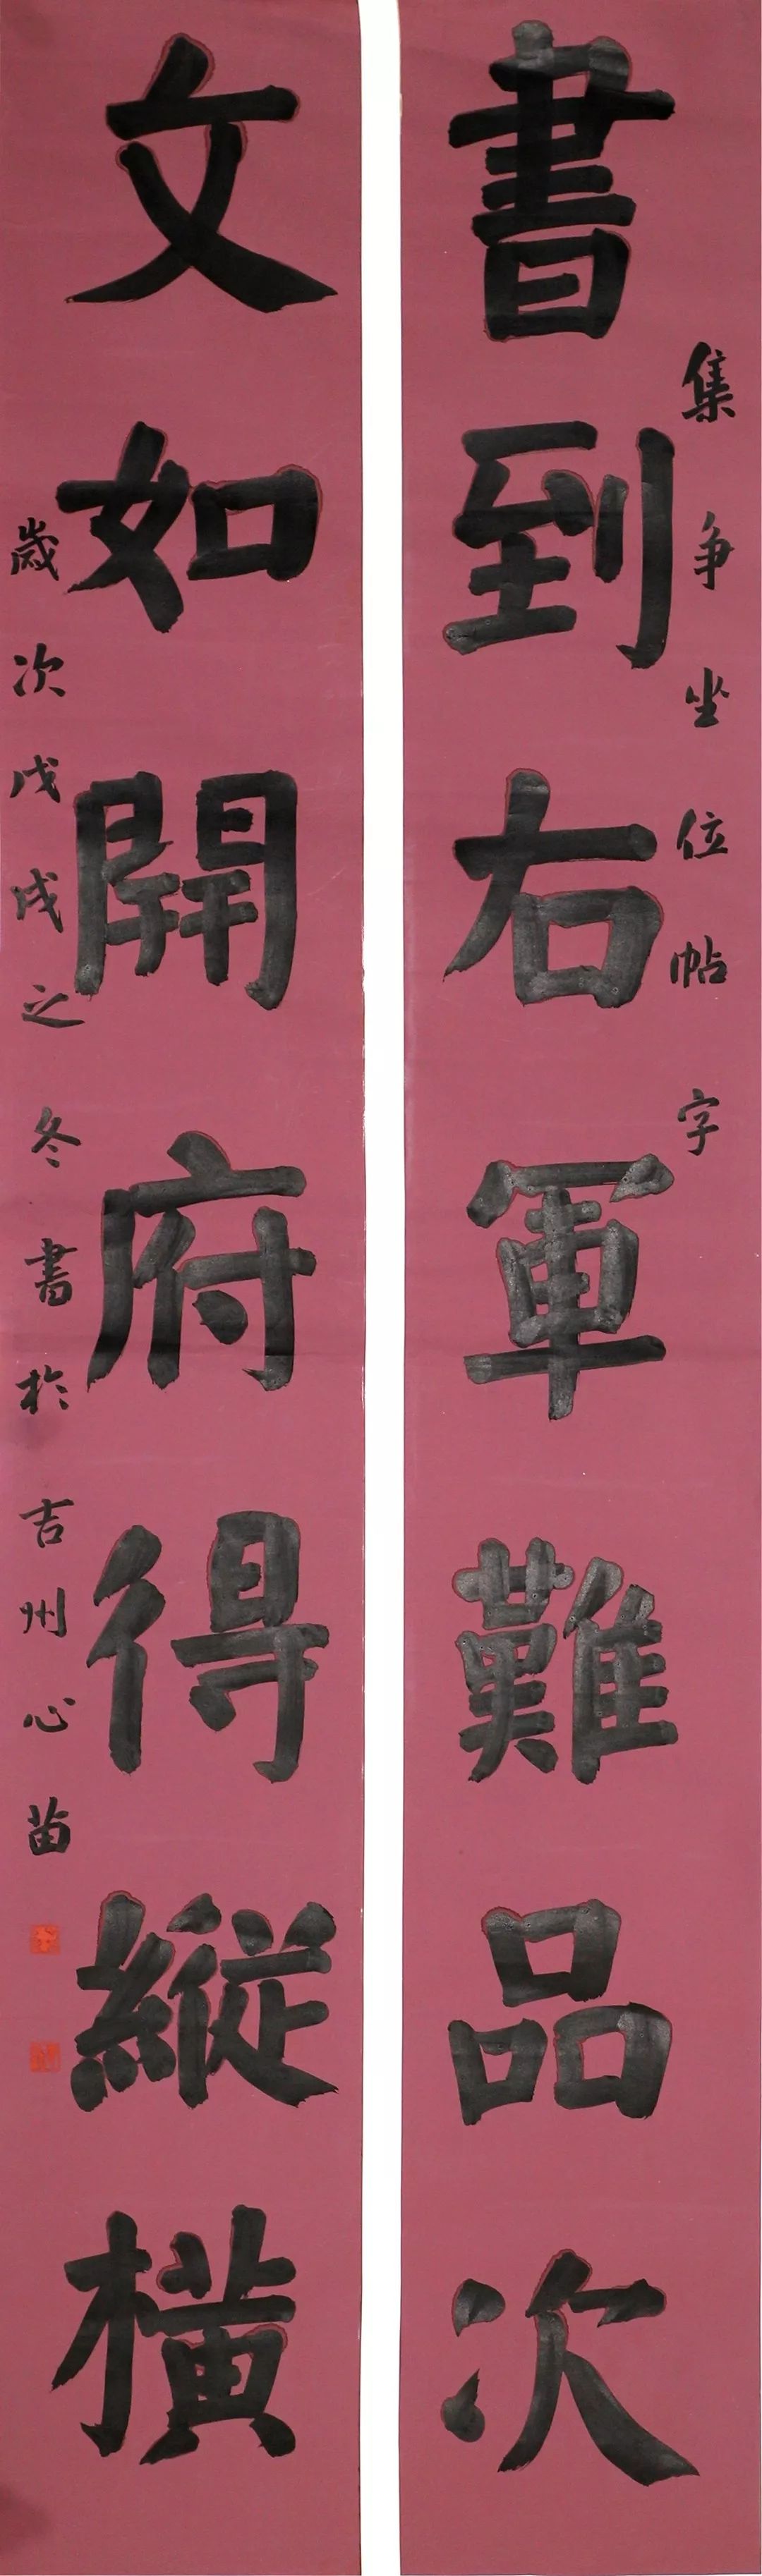 書到右軍難品次
集争坐位帖字
文如開府得縱橫
歲次戊戌之冬書於吉州心苗